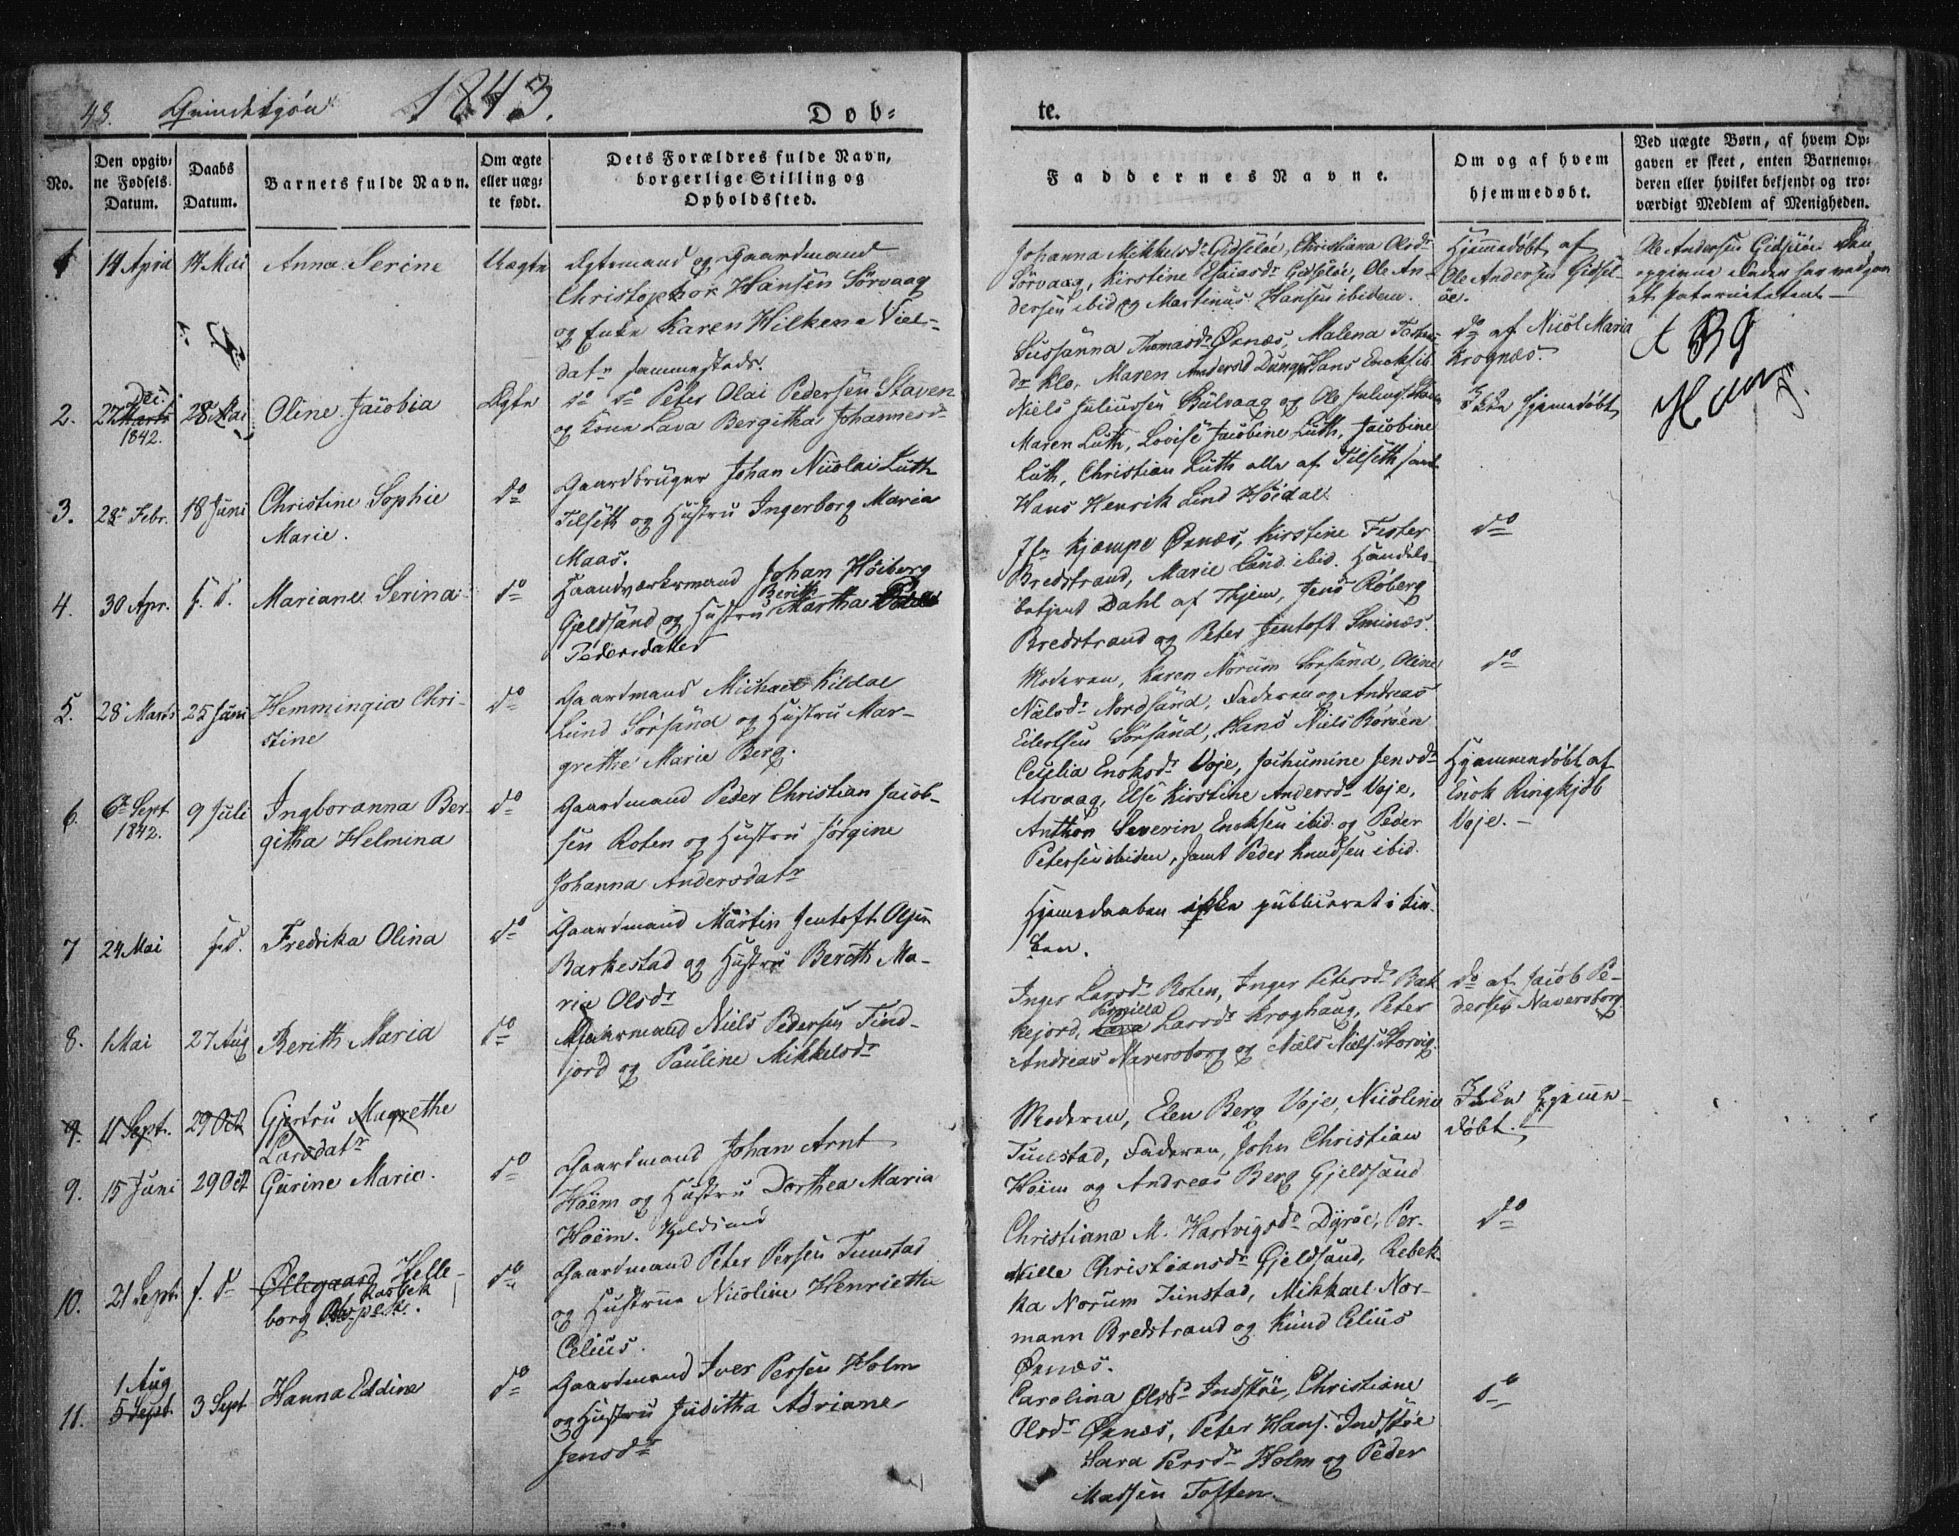 48. Qvindekjön 1843. Döb-
te.
No.
Den opgiv-
ne Fødsels
Datum.
Daabs
Datum.
Barnets fulde Navn.
Om ægte
eller uæg-
te født.
Dets Forældres fulde Navn,
borgerlige Stilling og
Opholdssted.
Faddernes Navne.
Om og af hvem
hjemmedøbt.
Ved uægte Børn, af hvem Op-
gaven er skeet, enten Barnemo-
deren eller hvilket bekjendt og tro-
værdigt Medlem af Menigheden.
1 14 April 14 Mai Anna Serine Uægte
Ægtemand og Gaardmand
Christopher Hansen Sörvaag
og Enke Karen Wilkene Niel-
datr sammesteds.
Johanna Mikkelsdr Gidsløe, Christiana Olsdr
Sörvaag, Kirstine Esaiasdr Gidsløe, Ole An-
dersen ibid og Martinus Hansen ibidem.
Hjemmedøbt af
Ole Andersen Gidsl-
öe.
Ole Andersen Gidsløe. Den
opgivne Fader har vedgaa-
et Paterniteten.
2. 27 Marts Dec. 1842. 28 Mai Oline Jacobia Ægte
do do Peter Olai Pedersen Staven
og Kone Lava Bergitha Johannesdr
Susanna Thomasdr Øxnæs, Malena
dr Klo, Maren Andersd Dunge, Hans Enoksen
Niels Juliussen Kulvaag og Ole Julius
do af Nicol Maria
Krognæs.
3. 28 Febr. 18 Juni Christine Sophie
Marie. do
Gaardbruger Johan Nicolai Luth
Tilseth og Hustru Ingerborg Maria
Maas.
Maren Luth, Lovise Jacobine Luth, Jacobine
Luth, Christian Luth alle af Tilseth samt
Hans Henrik Lind Höidal.
Ikke Hjemmedøbt
4. 30 Apr. f. d. Mariane Serina do
Haandværksmand Johan Höiberg
Gjeldsund og Hustru Berith Martha
Pedersdatter
Jfr Kjæmpe Øxnæs, Kirstine Fester
Bredstrand, Marie Lund ibid. Handels-
betjent Dahl af Thjem, Jens Roberg
Bredstrand og Peter Jentoft Sminæs.
do
5. 28 Marts 25 Juni Hemmingia Chri-
stine do
Gaardmand Michael Kildal
Lund Sörsund og Hustru Mar-
grethe Marie Berg.
Moderen, Karen Norum Sörsund, Oline
Nielsdr Nordsund, Faderen og Andreas
Eilertsen Sörsund, Hans Niels Börsen
do
6. 6 Sept 1842. 9 Juli Ingboranna Ber-
githa Helmina do
Gaardmand Peder Christian Jacob-
sen Roten og Hustru Jörgine
Johanna Andersdatr
Cecilia Enoksdr Vaje, Jochumine Jensdr
Alsvaag, Else Kirstine Andersdr Vaje,
Anthon Severin Enoksen ibid. og Peder
Petersen ibidem, samt Peder Knudsen ibid.
Hjemmedøbt af
Enok Ringkjøb
Vaje.
7 24 Mai f. d. Fredrika Olina do
Gaardmand Martin Jentoft Olsen
Barkestad og Hustru Berith Ma-
ria Olsdr
Hjemedaaben ikke publiceret i Kir-
ken.
8. 1 Mai 27 Aug Berith Maria do
Niels Pedersen Tind-
jord og Pauline Mikkelsdr
Inger Larsdr Roten, Inger Petersdr Bak-
kejord, Pernilla Larsdr Kroghaug, Peter
Andreas Naversborg og Niels Niels. Skorvig.
do af Jacob Pe-
dersen Naversborg
9. 11 Sept. 29 Oct Gjertru Magrethe
Larsdatr
9. 15 Juni 29 Oct Gurine Marie. do
Gaardmand Johan Arnt
Höem og Hustru Dorthea Maria
Höem. Gjeldsund
Moderen, Elen Berg Vaje, Nicoline
Tunstad, Faderen, John Christian
Höem og Andreas Berg Gjeldsund
Ikke Hjemme-
døbt.
10. 21 Sept. f. d Øllegaard Helle-
borg Rasbek. do
Gaardmand Peter Persen Tunstad
og Hustrue Nicoline Henriette
Celius.
Christiana M. Hartvigsdr Dyröe, Per-
nille Christiansdr Gjeldsund, Rebek-
ka Norum Tunstad, Mikkael Nor-
mann Bredstrand og Knud Celius
Øxnæs.
do
11. 1 Aug 5 Sept. 3 Sept Hanna Eddine do
Gaardmand Iver Persen Holm
og Hustru Juditha Adriane
Jensdr
Carolina Olsdr Indstöe, Christiane
Olsdr Øxnæs, Peter Hans. Indstöe
Sara Persdr Holm og Peder
Madsen Toften.
do